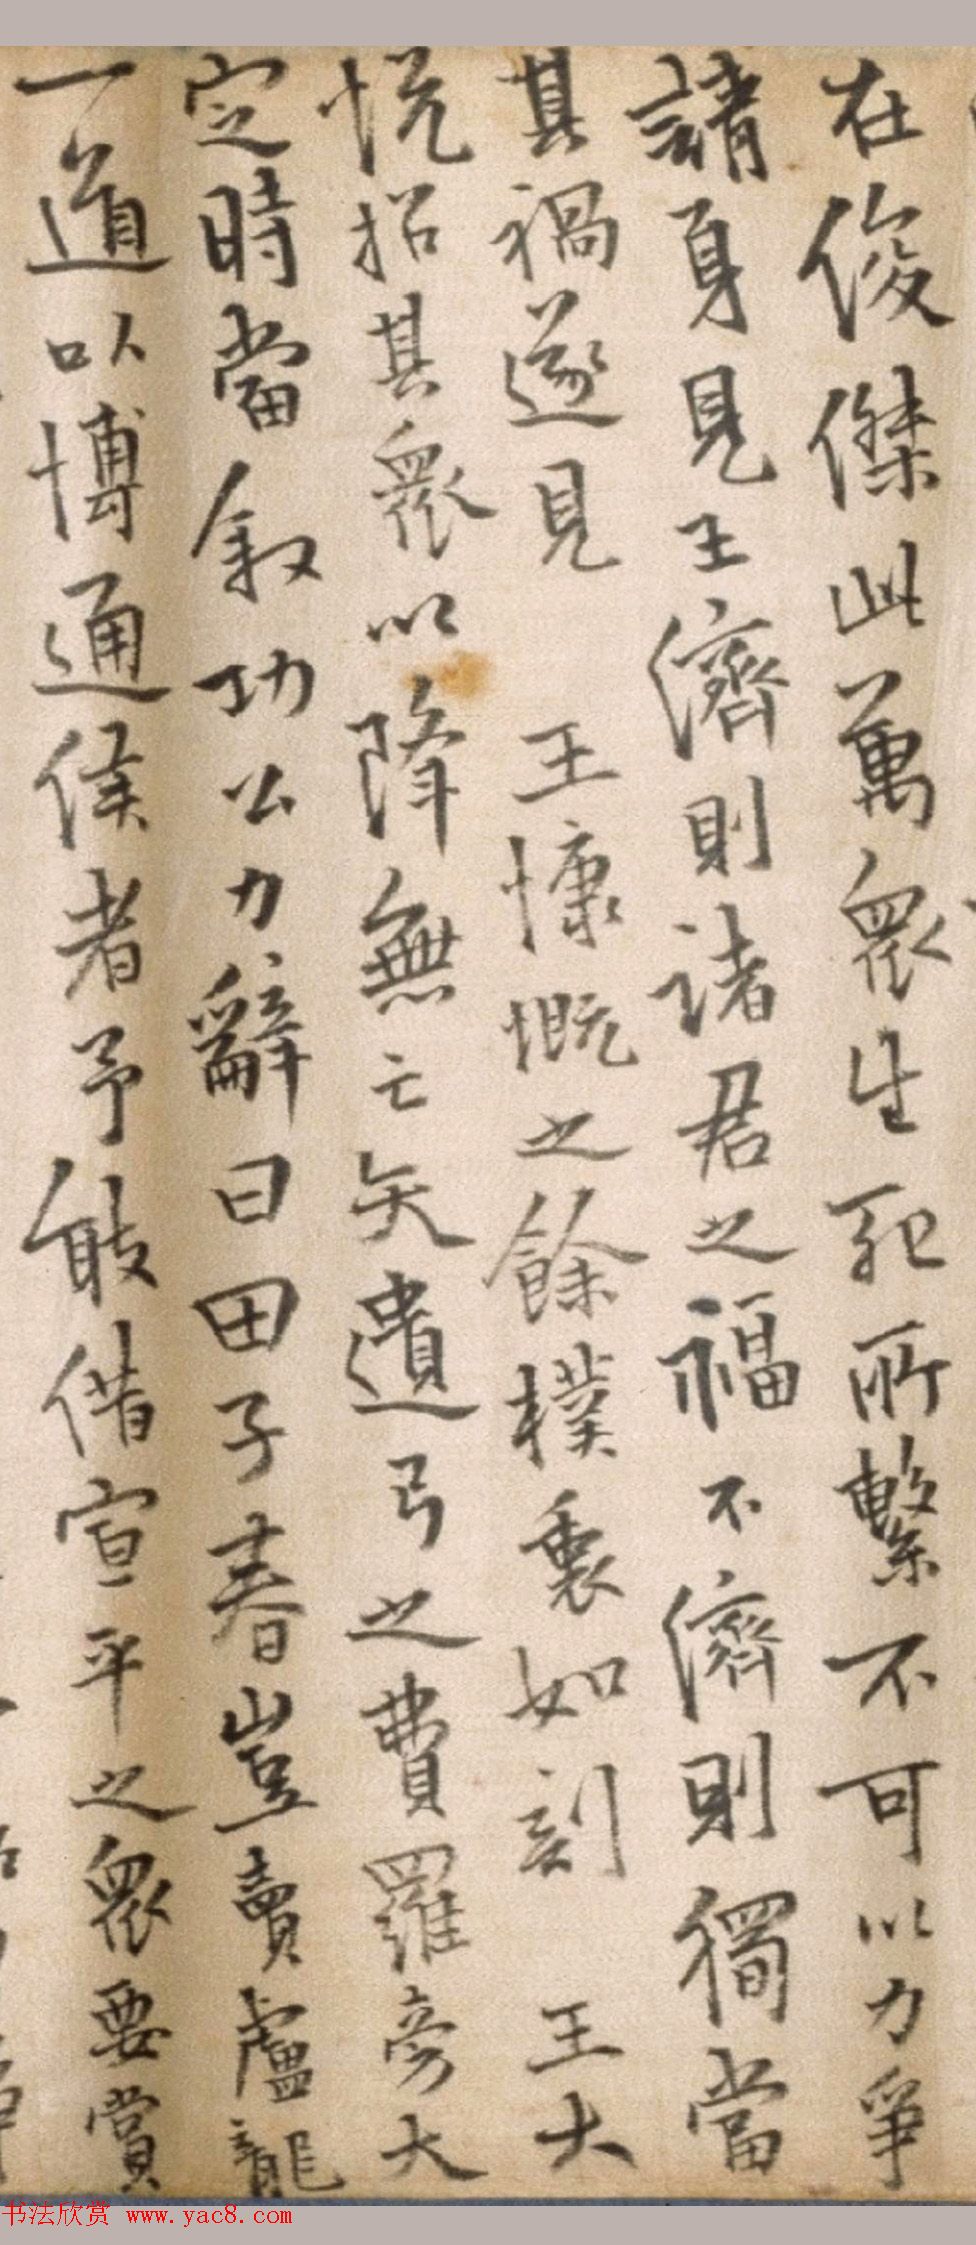 在俊傑此萬衆生死所繫不可以力爭
請身見王濟則諸君之福不濟則獨當
其禍遂見 王慷慨之餘樸裏如刻 王大
悦招其衆以降無亡矢遺弓之費羅旁大
定時當敘功公力辭曰田子春豈賣盧龍
一道以博通侯者予敢借宣平之衆要賞
书法欣赏 www.yac8.com